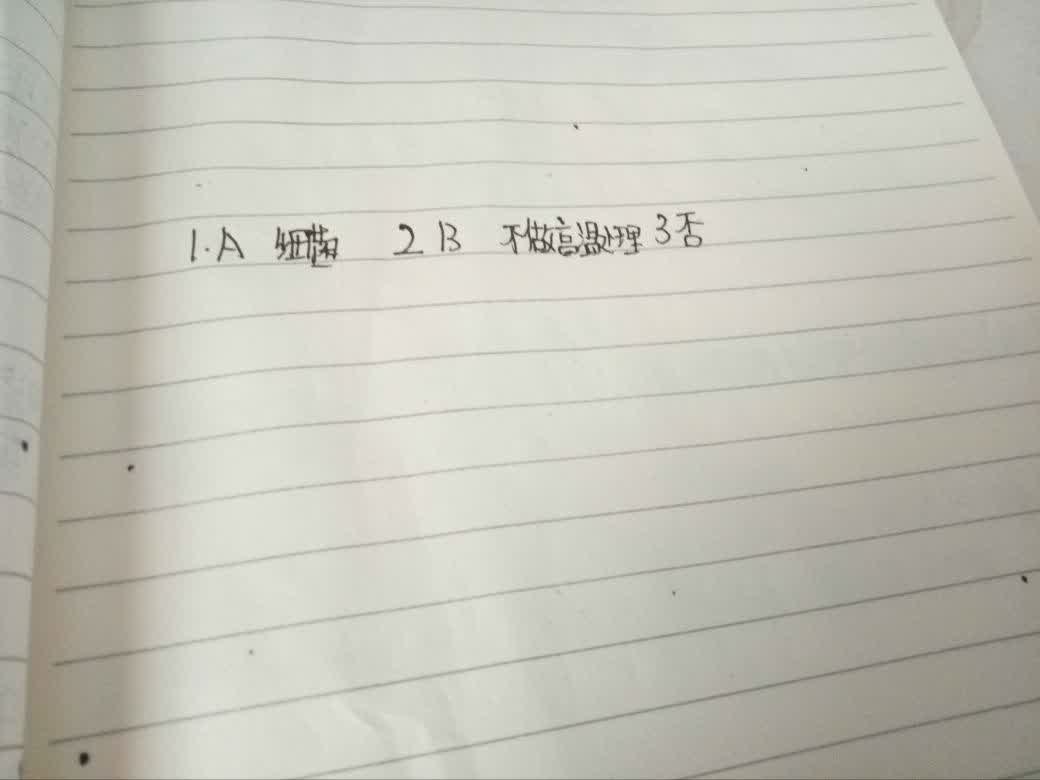 1.A 细菌 2 B 不做高温处理 3 否